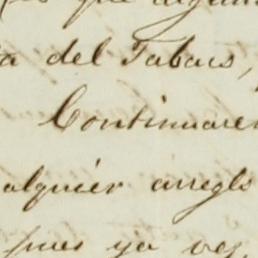 que algun
a del Tabaco,
Continuare
alquier arreglo
pues ya ves,